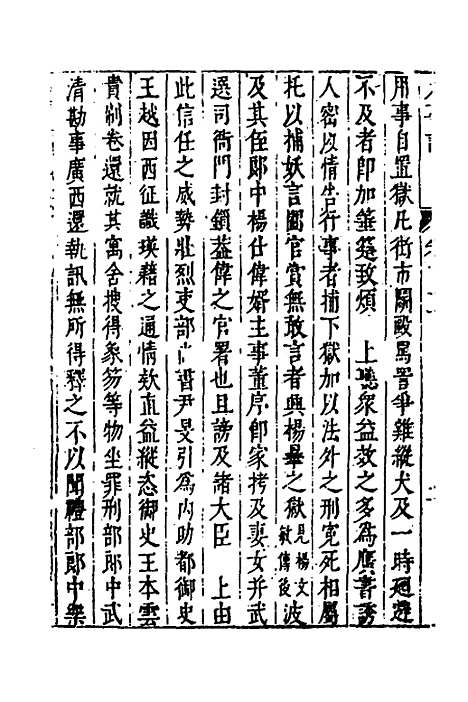 用事自置獄凡街市鬬毆罵詈爭雞縱犬及一時廻避
不及者卽加箠撻致煩　上聽衆益敎之多爲贋書誘
人密以情告行事者捕下獄加以法外之刑冤死相屬
托以捕妖言圖官賞無敢言者興楊曅之獄見楊文敏傳後波
及其侄郎中楊仕偉婿主事董序卽家拷及妻女并武
選司衙門封鎖葢偉之官署也且謗及諸大臣　上由
此信任之威勢壯烈吏部尚書尹旻引爲内助都御史
王越因西征識瑛藉之通情欵直益縱恣御史王本雲
貴刷卷還就其寓舍搜得象笏等物坐罪刑部郎中武
清勘事廣西還執訊無所得釋之不以聞禮部郎中樂